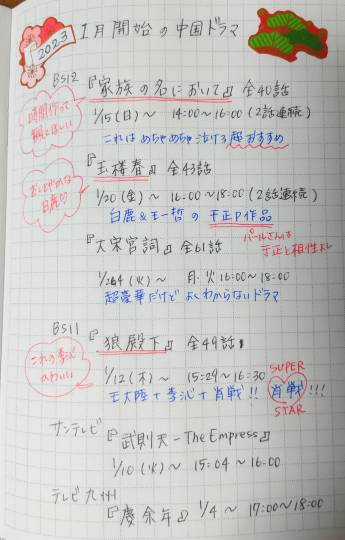 2023
1月開始の中国ドラマ
BS12
『家族の名において』 全40話
時間作って
観てほしい
1/15(日)～ 14:00～16:00 (2話連続)
これは めちゃめちゃ泣ける超おすすめ
『玉楼春』 全43話
おしとやかな
白鹿♡
1/20(金)～ 16:00～18:00 (2話連続)
白鹿&王一哲 の 于正P作品
パールさんは
于正と相性よし
『大宋宮詞』 全61話
1/24(火)～ 月-火 16:00～18:00
超豪華だけど よくわからないドラマ
BS11
『狼殿下』 全49話
これの李沁
かわいい
1/12(木)～ 15:29～16:30
王大陸+李沁+肖戦!! 肖戦!!!
SUPER
STAR
サンテレビ
『武則天-The Empress』
1/10(火)～ 15:04～16:00
テレビ九州
『慶余年』 1/4～ 17:00～18:00